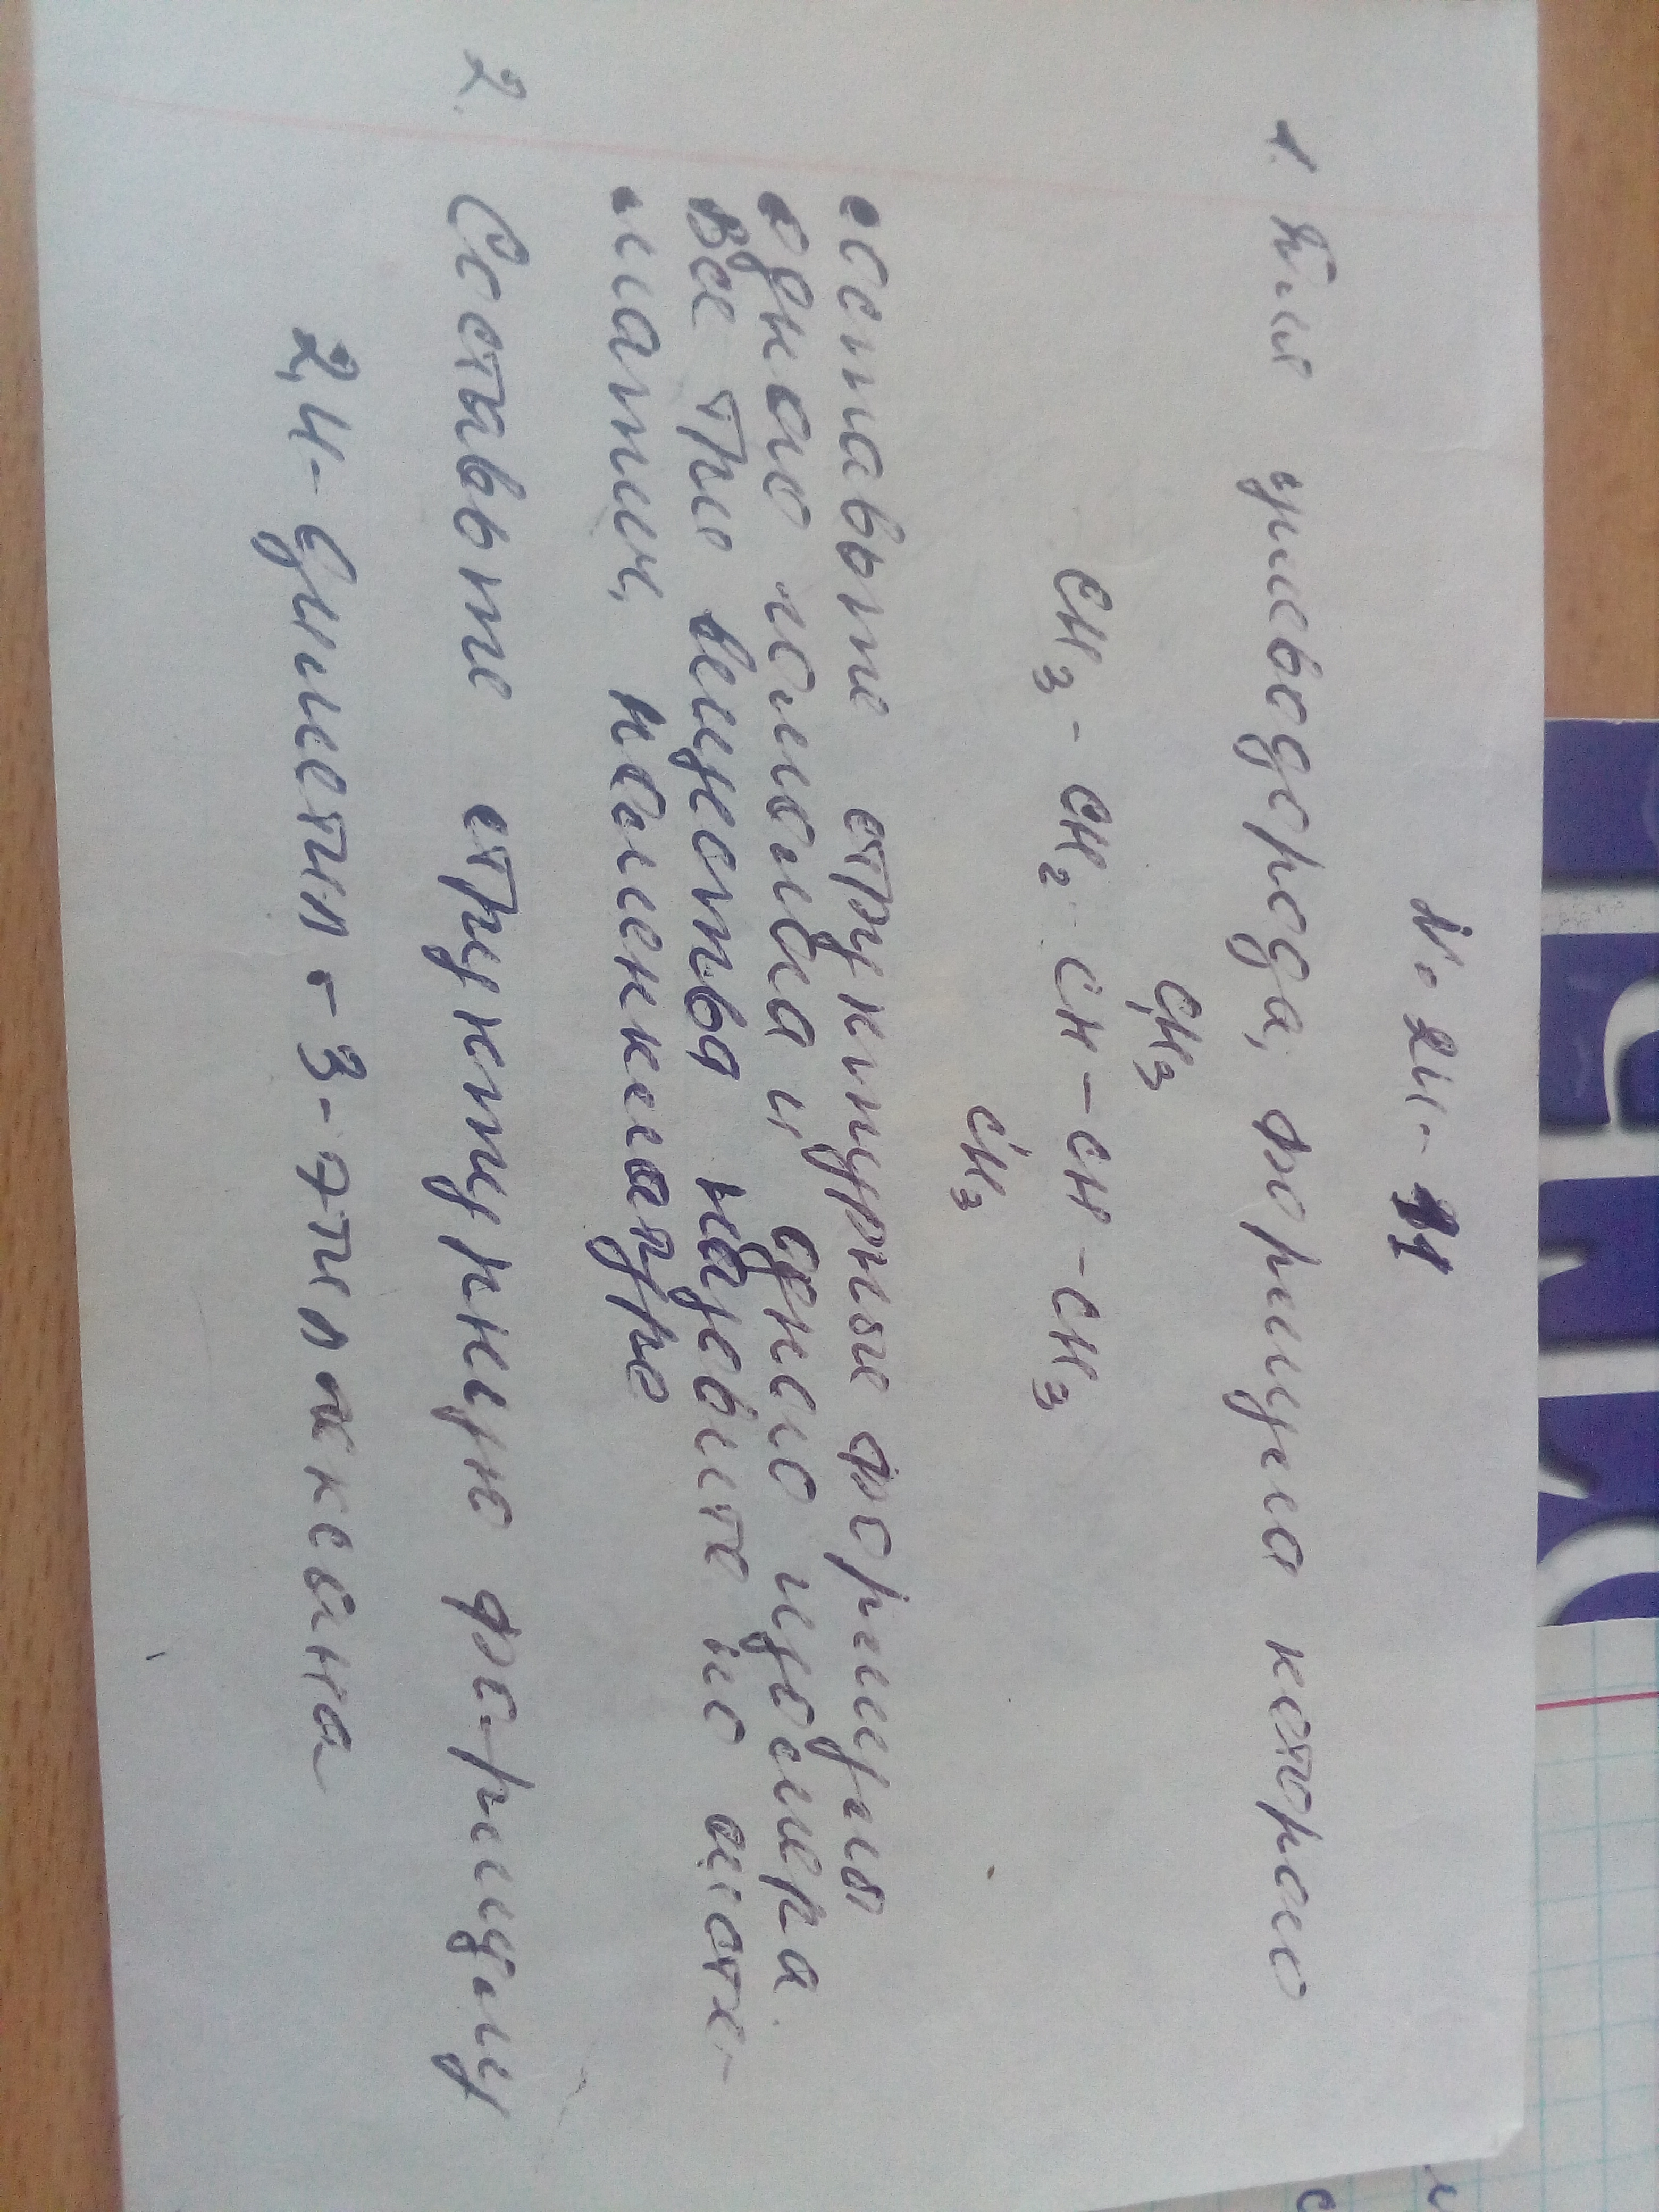 1. Для углеводорода, формула которого
CH3
CH3 - CH2 - CH - CH - CH3
CH3
составьте структурные формулы
одного гомолога и одного изомера.
Все три вещества назовите по систе-
матич. номенклатуре
2. Составьте структурную формулу
2,4-диметил - 3-этилгексана